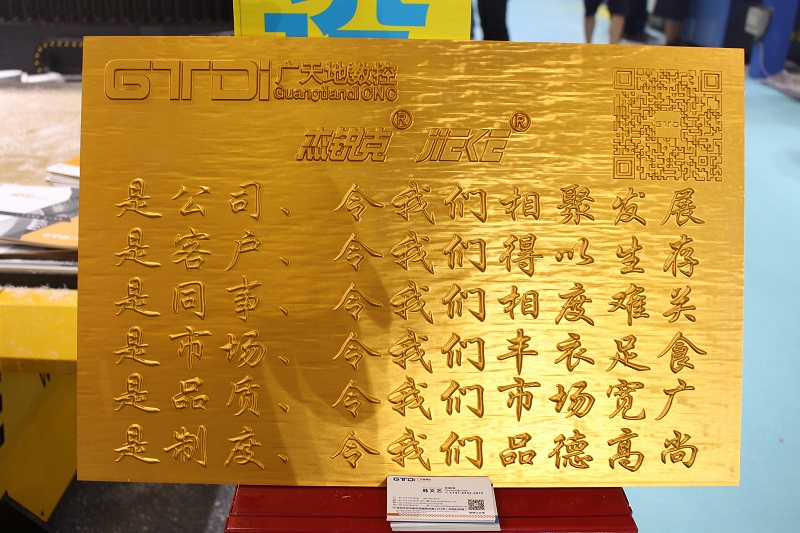 GTDi 广天地数控
GuangtiandiCNC
杰锐克® JIEKE®
是公司、令我们相聚发展
是客户、令我们得以生存
是同事、令我们相度难关
是市场、令我们丰衣足食
是品质、令我们市场宽广
是制度、令我们品德高尚
GTDi